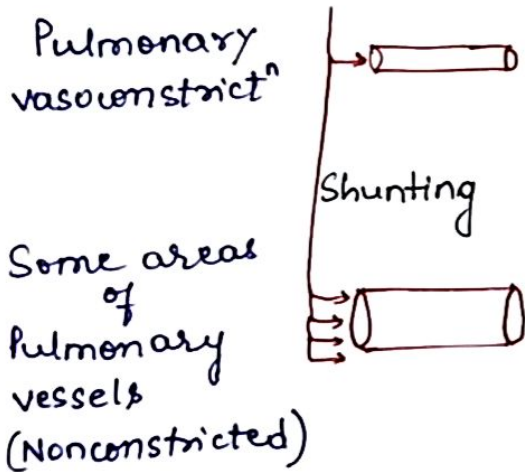 Pulmonary
vasoconstrictⁿ
Shunting
Some areas
of
Pulmonary
vessels
(Nonconstricted)